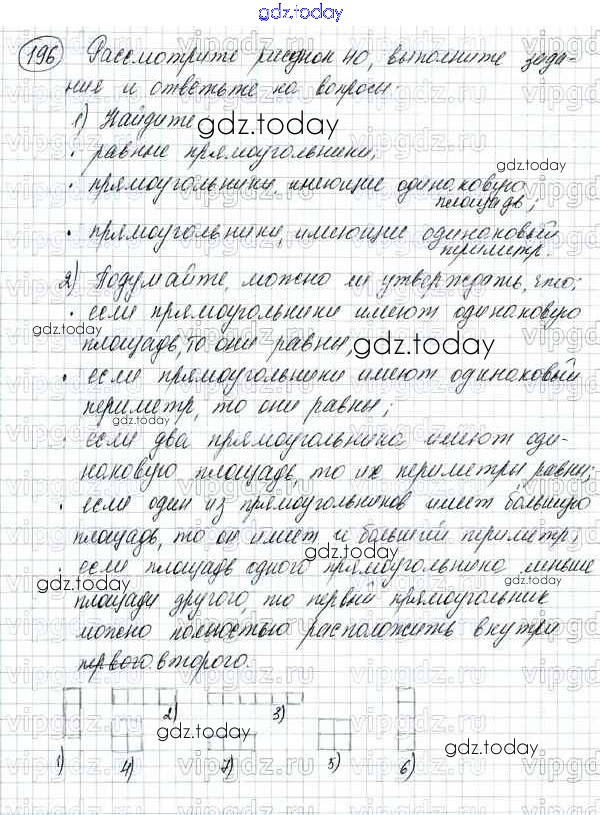 gdz.today
196 Рассмотрите рисунок 40, выполните зада-
ния и ответьте на вопросы:
1) Найдите
gdz.today
• равные прямоугольники;
gdz.today
• прямоугольники, имеющие одинаковую
площадь;
• прямоугольники, имеющие одинаковый
периметр.
2) Подумайте, можно ли утверждать, что:
• если прямоугольники имеют одинаковую
gdz.today
площадь, то они равны;
gdz.today
• если прямоугольники имеют одинаковый
периметр, то они равны;
• если два прямоугольника имеют оди-
наковую площадь, то их периметры равны;
• если один из прямоугольников имеет большую
площадь, то он имеет и больший периметр;
gdz.today
• если площадь одного прямоугольника меньше
gdz.today
площади другого, то первый прямоугольник
можно полностью расположить внутри
первого второго.
2) 3)
gdz.today
gdz.today
1) 4) 7) 5) 6)
vipgdz.ru